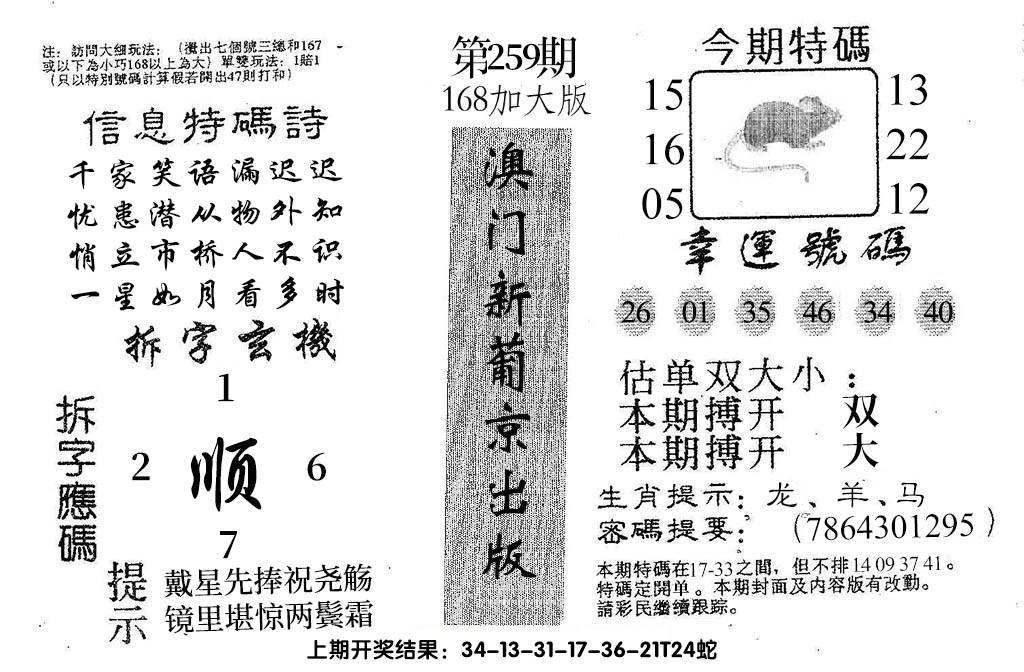 注：訪問大細玩法：（攪出七個號三總和167
或以下為小巧168以上為大）單雙玩法：1賠1
（只以特別號碼計算假若開出47則打和）
信息特碼詩
千家笑语漏迟迟
忧患潜从物外知
悄立市桥人不识
一星如月看多时
拆字玄機
拆字應碼
1
2 顺 6
7
提示
戴星先捧祝尧觞
镜里堪惊两鬓霜
第259期
168加大版
澳门新葡京出版
今期特碼
15 13
16 22
05 12
幸運號碼
26 01 35 46 34 40
估单双大小：
本期搏开 双
本期搏开 大
生肖提示：龙、羊、马
密碼提要：（7864301295）
本期特碼在17-33之間，但不排14 09 37 41。
特碼定開单。本期封面及内容版有改動。
請彩民繼續跟踪。
上期开奖结果：34-13-31-17-36-21T24蛇